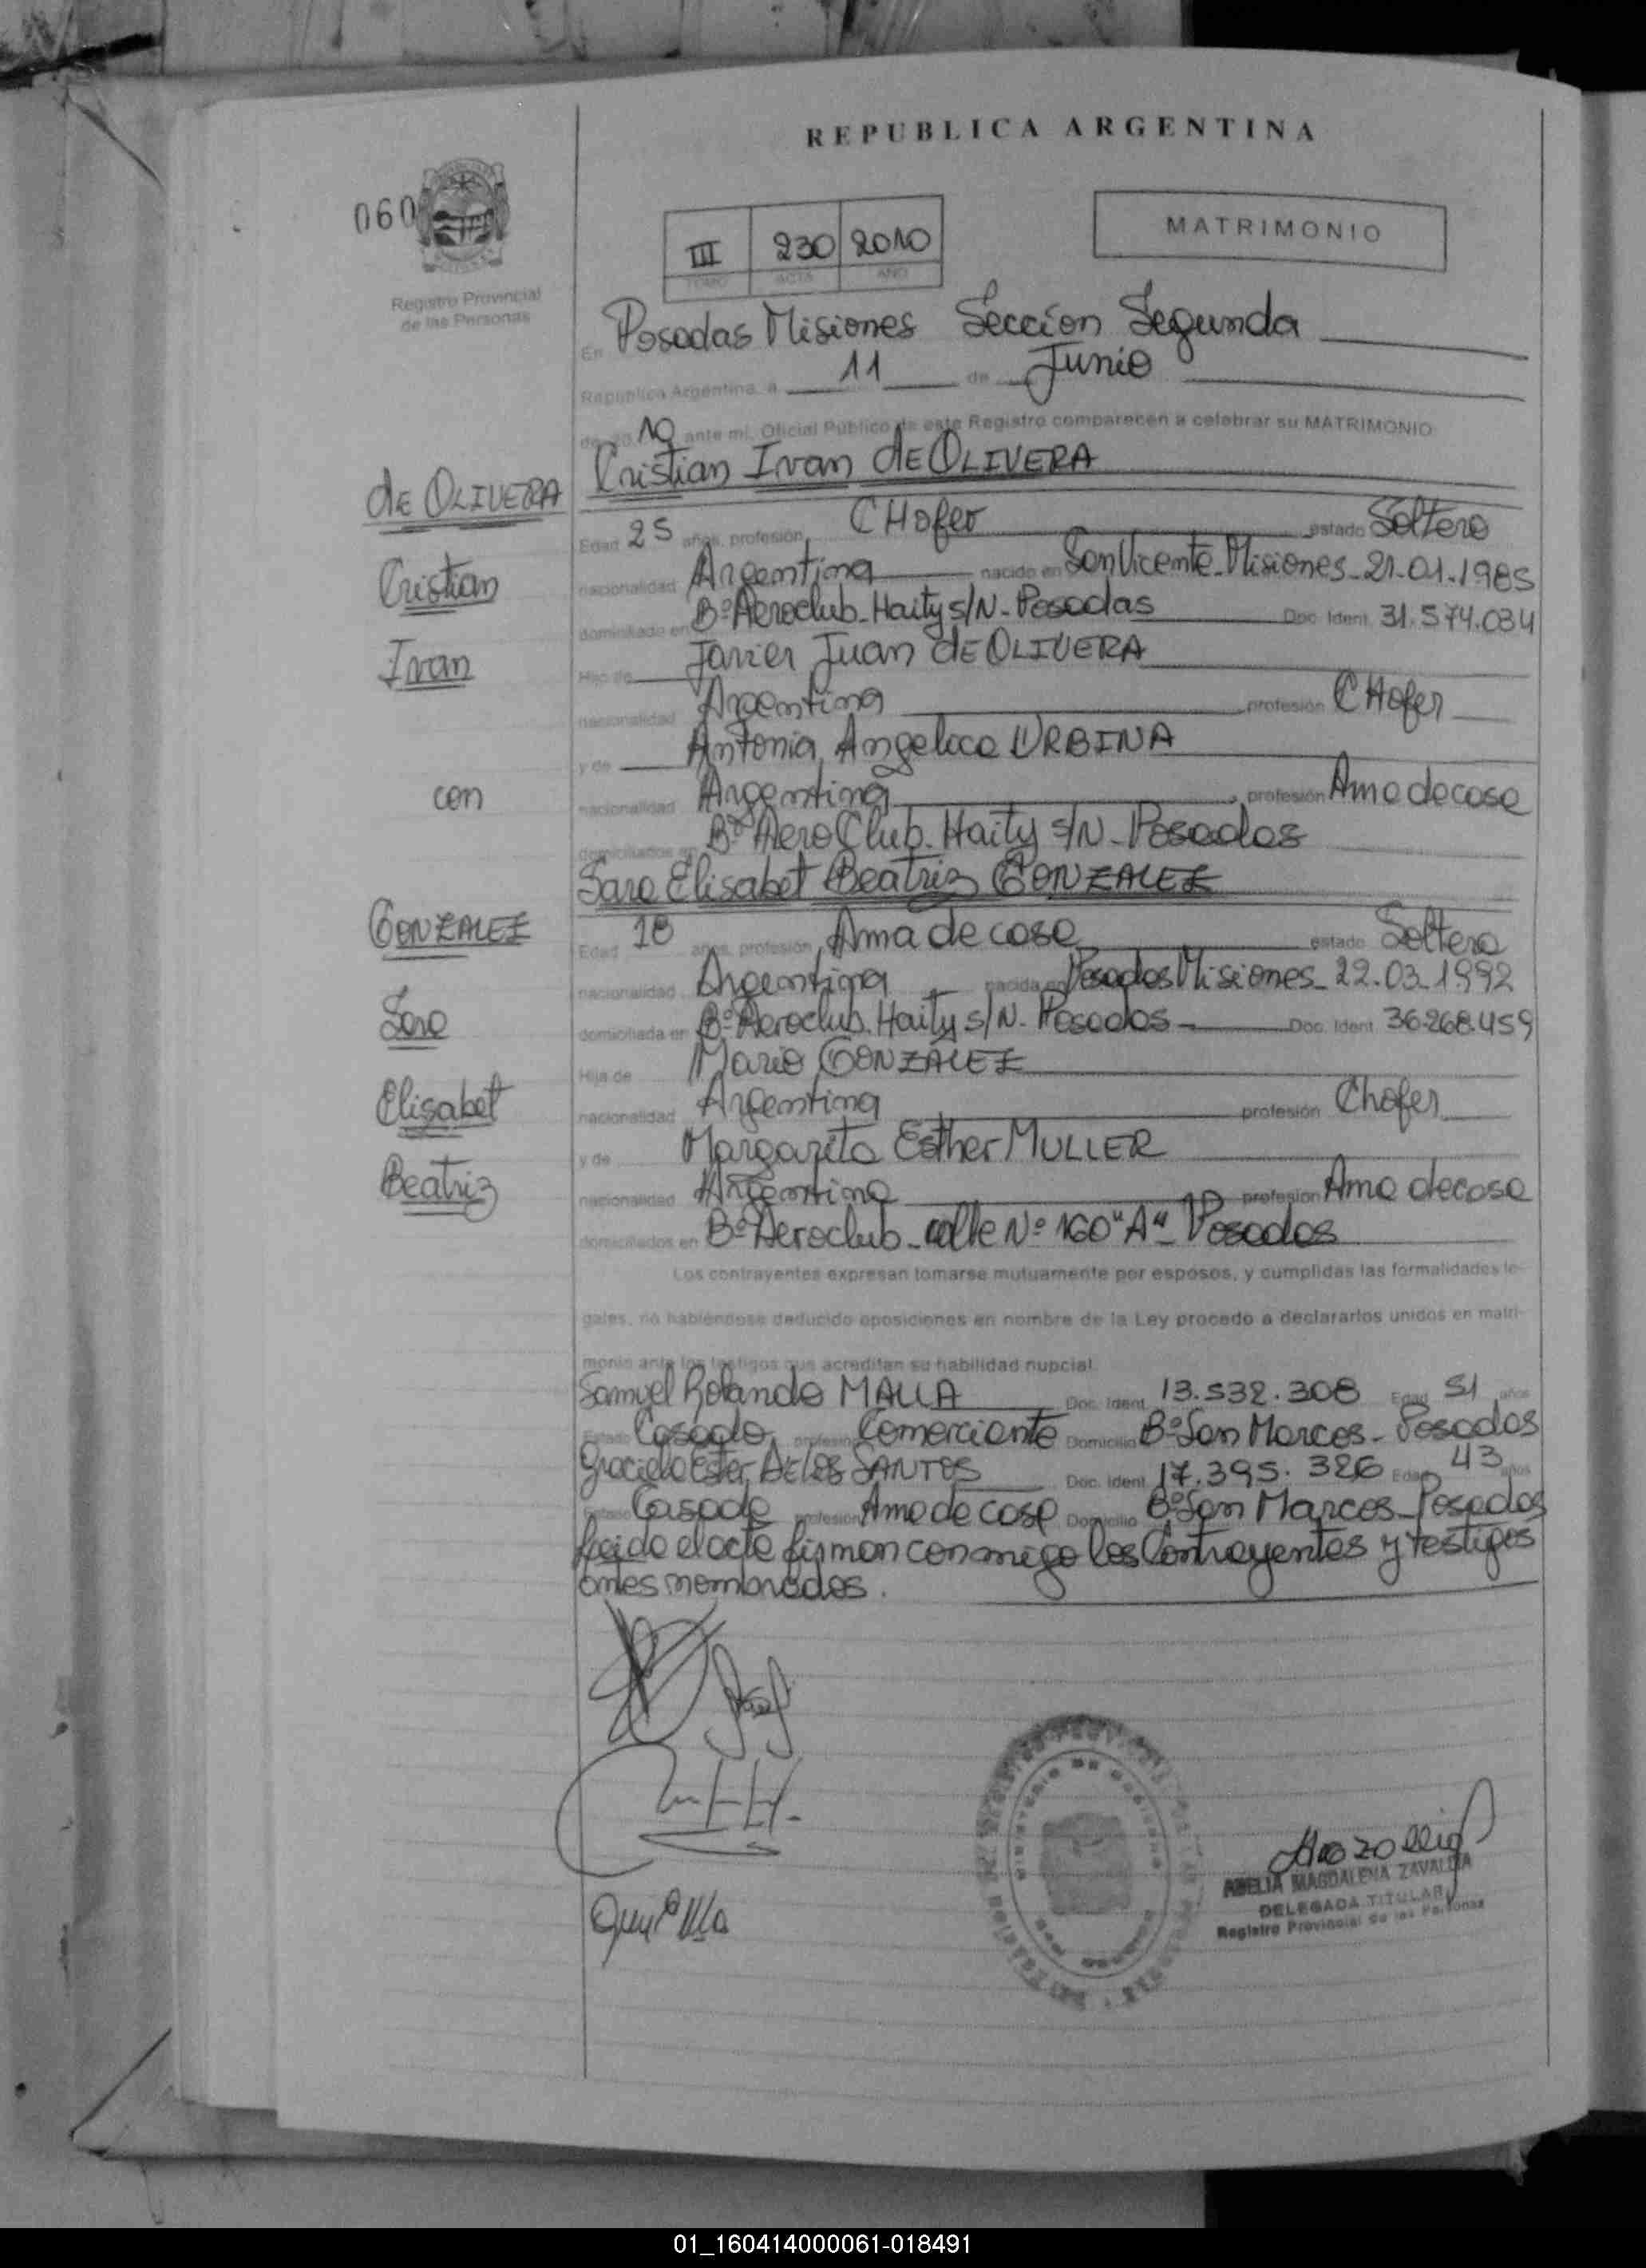 REPUBLICA ARGENTINA
060
III 230 2010
TOMO ACTA AÑO
MATRIMONIO
Registro Provincial
de las Personas
En Posadas Misiones Seccion Segunda
República Argentina, a 11 de Junio
de 20 10 ante mi, Oficial Público de este Registro comparecen a celebrar su MATRIMONIO
Cristian Ivan dE OLIVERA
dE OLIVERA
Edad 25 años, profesión CHofer estado Soltero
Cristian
nacionalidad Argentina nacido en San Vicente-Misiones-21-01-1985
domiciliado en Bº Aeroclub-Haity s/N-Posadas Doc. Ident. 31.574.034
Ivan
Hijo de Javier Juan dE OLIVERA
nacionalidad Argentina profesión CHofer
y de Antonia Angelica URBINA
con
nacionalidad Argentina, profesión Ama de casa
domiciliados en Bº AeroClub-Haity s/N-Posadas
Sara Elisabet Beatriz GONZALEZ
GONZALEZ
Edad 18 años, profesión Ama de casa estado Soltera
nacionalidad Argentina nacida en Posadas Misiones-22.03.1992
Sara
domiciliada en Bº Aeroclub.Haity s/N-Posadas- Doc. Ident. 36.268.459
Hija de Mario GONZALEZ
Elisabet
nacionalidad Argentina profesión Chofer
y de Margarita Esther MULLER
Beatriz
nacionalidad Argentina profesión Ama de casa
domiciliados en Bº Aeroclub-calle Nº 160 "A"- Posadas
Los contrayentes expresan tomarse mutuamente por esposos, y cumplidas las formalidades le-
gales, no habiéndose deducido oposiciones en nombre de la Ley procedo a declararlos unidos en matri-
monio ante los testigos que acreditan su habilidad nupcial.
Samuel Rolando MALLA Doc. Ident. 13.532.308 Edad 51 años
Estado Casado profesión Comerciante Domicilio Bº San Marcos-Posadas
Graciela Ester DE LOS SANTOS Doc. Ident. 17.395.326 Edad 43 años
Estado Casada profesión Ama de casa Domicilio Bº San Marcos-Posadas
Leida el acta firman conmigo los Contrayentes y testigos
antes nombrados.
ABELIA MAGDALENA ZAVALLIA
DELEGADA TITULAR
Registro Provincial de las Personas
01_160414000061-018491